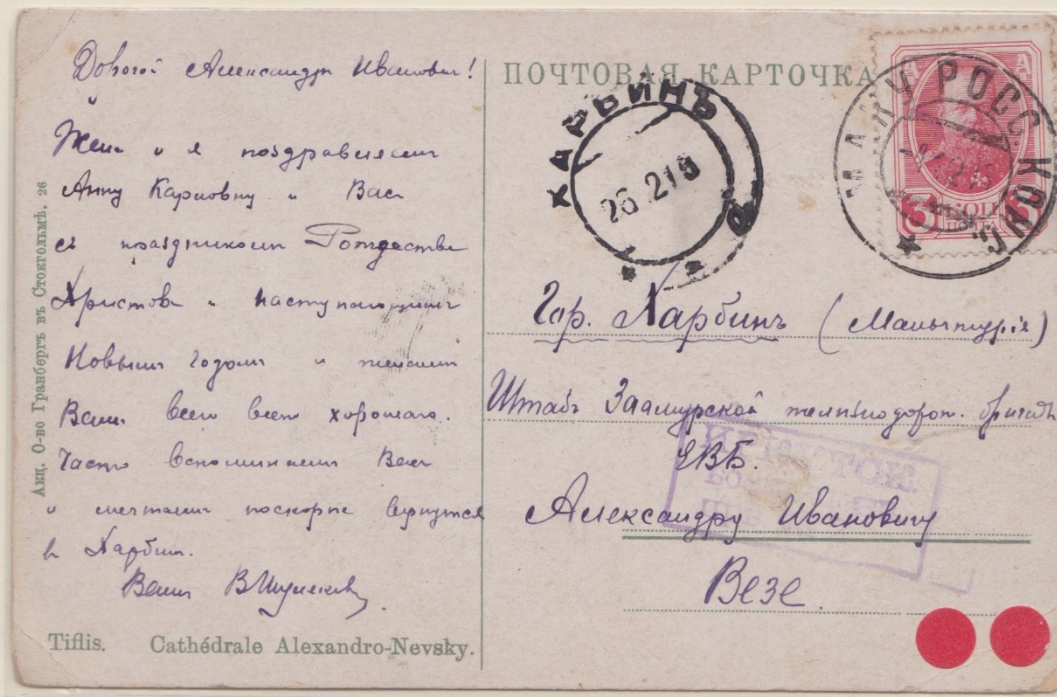 ПОЧТОВАЯ КАРТОЧКА
Дорогой Александръ Ивановичъ!
Жена и я поздравляемъ
Анну Карловну и Васъ
съ праздникомъ Рождества
Христова и наступающимъ
Новымъ годомъ и желаемъ
Вамъ всего всего хорошаго.
Часто вспоминаемъ Васъ
и мечтаемъ поскорѣе вернуться
въ Харбинъ.
Вашъ В
Tiflis. Cathédrale Alexandro-Nevsky.
Акц. О-во Гранбергъ въ Стокгольмѣ. 26
ХАРБИНЪ
26.2
РОСС. КОНТ.
3 КОП 3
Гор. Харбинъ (Маньчжурія)
Штабъ Заамурской желѣзнодорож. бригады
ЕВБ.
Александру Ивановичу
Везе.
ИРКУТСК